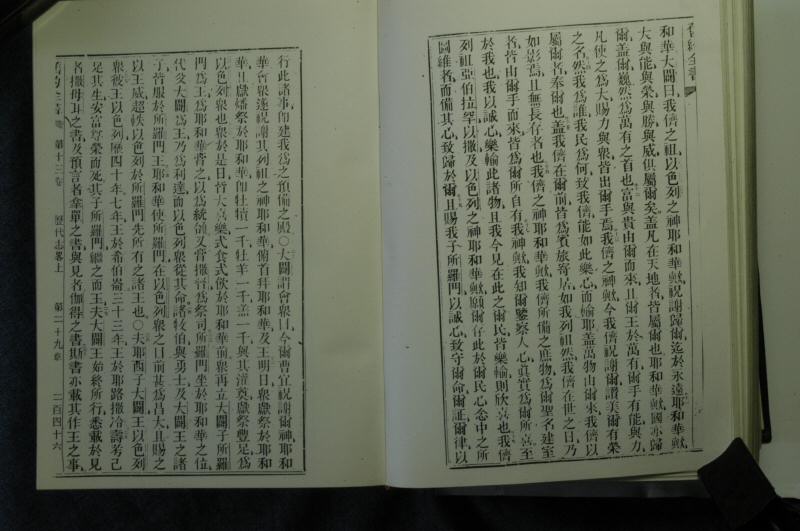 舊約全書
和華大闢曰我儕之祖以色列之神耶和華歟祝謝歸爾迄於永遠耶和華歟
大與能與榮與勝與威俱屬爾矣蓋凡在天地者皆屬爾也耶和華歟國亦歸
爾蓋爾巍然為萬有之首也富與貴由爾而來且爾王於萬有爾手有能與力
凡使之為大賜力與眾皆出爾手焉我儕之神歟今我儕祝謝爾讚美爾有榮
之名然我為誰我民為何致我儕能如此樂心而輸耶蓋萬物由爾來我儕以
屬爾者奉爾也蓋我儕在爾前皆為賓旅寄居如我列祖然我儕在世之日乃
如影焉且無長存者也我儕之神耶和華歟我儕所備之庶物為爾聖名建室
者皆由爾手而來皆為爾所自有我神歟我知爾鑒察人心真實為爾所喜至
於我也我以誠心樂輸此諸物且我今見在此之爾民皆樂輸則欣喜也我儕
列祖亞伯拉罕以撒及以色列之神耶和華歟願爾存此於爾民心念中之所
圖維者而備其心致歸於爾且賜我子所羅門以誠心致守爾命爾証爾律以
行此諸事即建我為之預備之殿○大闢謂會眾曰今爾曹宜祝謝爾神耶和
華會眾遂祝謝其列祖之神耶和華俯首拜耶和華及王明日眾獻祭於耶和
華且獻燔祭於耶和華即牡犢一千牡羊一千羔一千與其灌奠獻祭豐足為
以色列眾也眾於是日皆大喜樂式食式飲於耶和華前眾再立大闢子所羅
門為王為耶和華膏之以為統領又膏撒督為祭司所羅門坐於耶和華之位
代父大闢為王乃為利達而以色列眾從其命諸牧伯與勇士及大闢王之諸
子皆服於所羅門王耶和華使所羅門在以色列眾之目前甚為昌大且賜之
以王威超軼以色列於所羅門先所有之諸王也○夫耶西子大闢王以色列
眾彼王以色列歷四十年七年王於希伯崙三十三年王於耶路撒冷壽考已
足其生安富尊榮而死其子所羅門繼之而王夫大闢王始終所行悉載於見
者撒母耳之書及預言者拿單之書與見者伽得之書斯書亦載其作王之事
第十三卷 歷代志畧上 第二十九章 二百四十六